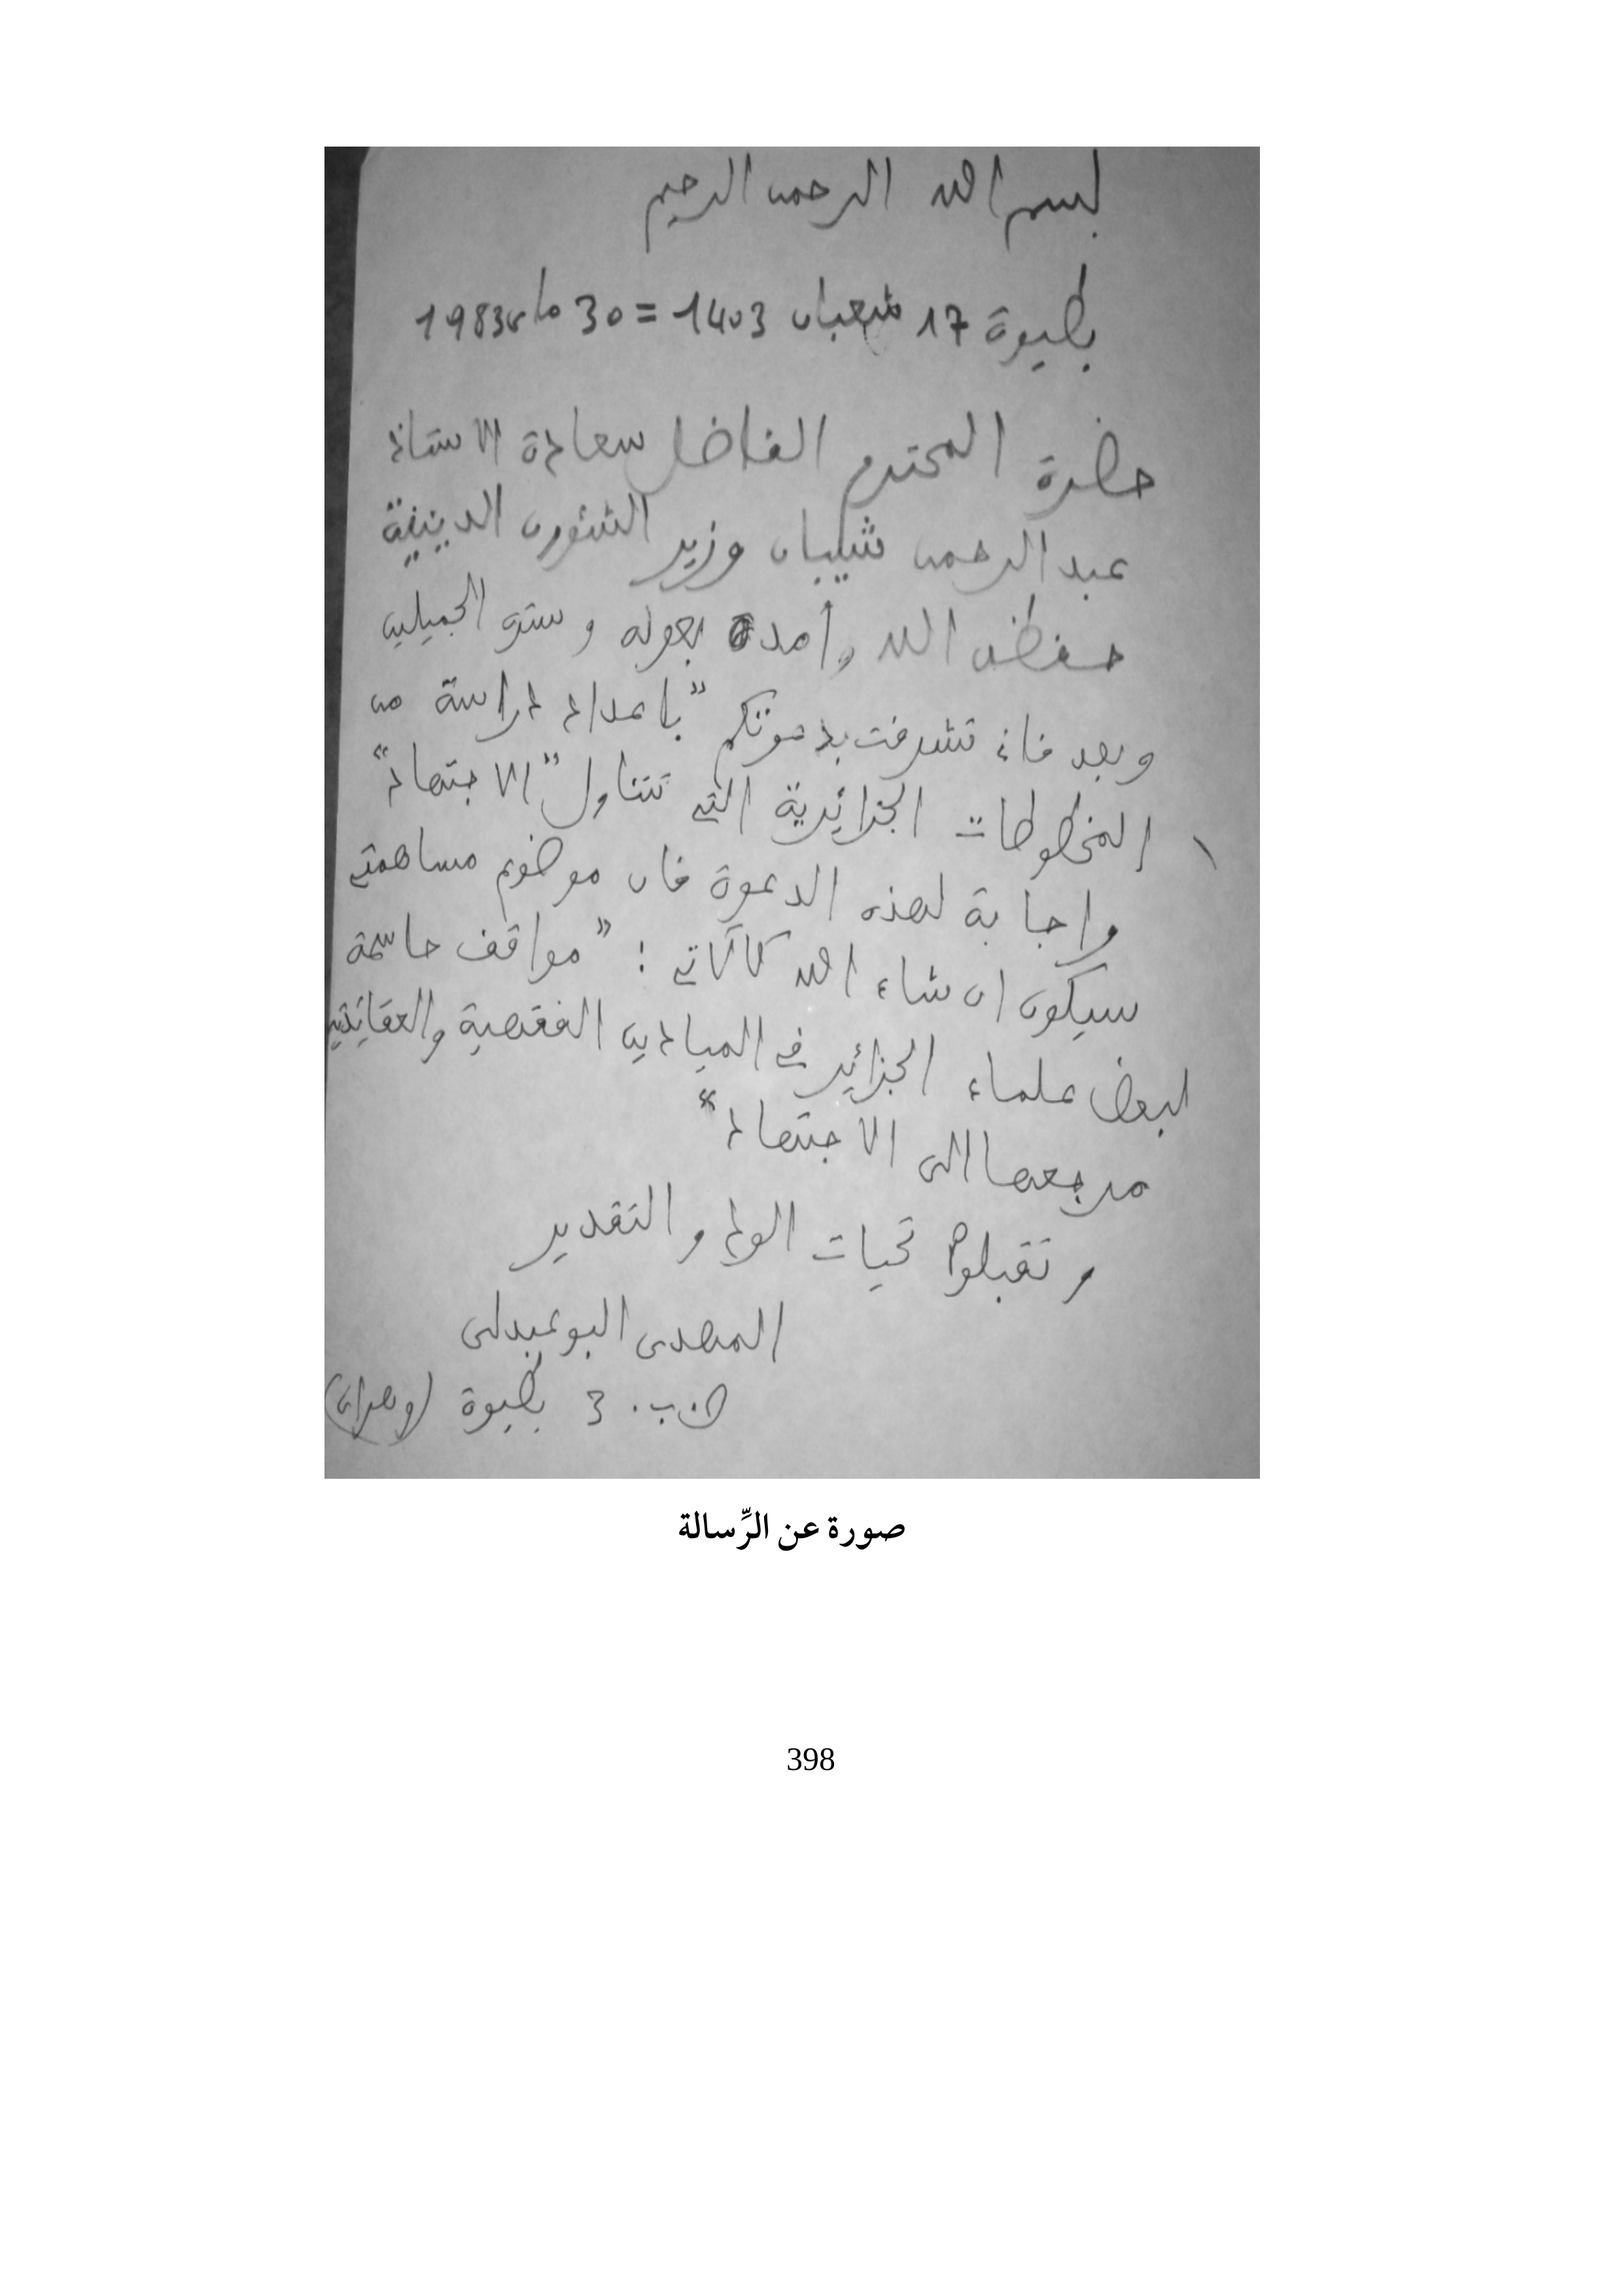 بسم الله الرحمن الرحيم
بطيوة 17 شعبان 1403 = 30 ماي 1983
حضرة المحترم الفاضل سعادة الاستاذ
عبد الرحمن شيبان وزير الشئون الدينية
حفظه الله وأمده بعونه وستره الجميلين
وبعد فاذ تشرفت بدعوتكم "باعداد دراسة من
المخطوطات الجزائرية التي تتناول "الاجتهاد"
واجابة لهذه الدعوة فان موضوع مساهمتي
سيكون ان شاء الله كالآتي : "مواقف حاسمة
لبعض علماء الجزائر في الميادين الفقهية والعقائدية
مرجعها الى الاجتهاد"
وتقبلوا تحيات الود والتقدير
المهدي البوعبدلي
ص.ب. 3 بطيوة (وهران)
صورة عن الرِّسالة
398